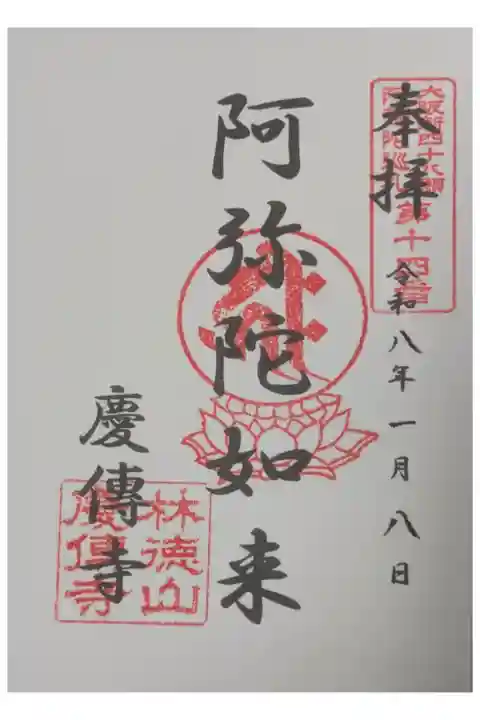 奉拝
大阪新四十八願
阿弥陀巡礼
第十四番
令和八年一月八日
阿弥陀如来
慶傳寺
林徳山
慶傳寺